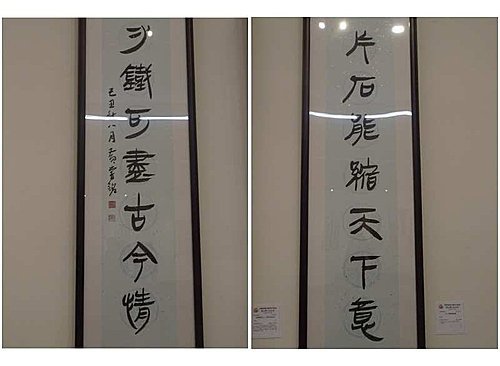 片石能縮天下意
寸鐵可盡古今情
己丑秋八月